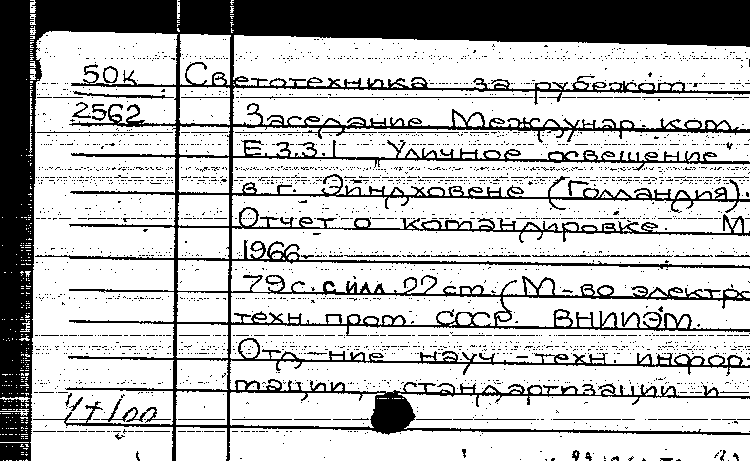 50к Светотехника за рубежом.
2562 Заседание Междунар. ком.
Е.3.3.1 „Уличное освещение"
в г. Эйндховене (Голландия).
Отчет о командировке. М.
1966.
79с. с илл. 22 см. (М-во электро
техн. пром. СССР. ВНИИЭМ.
Отд-ние науч.-техн. инфор-
мации, стандартизации и
1+100